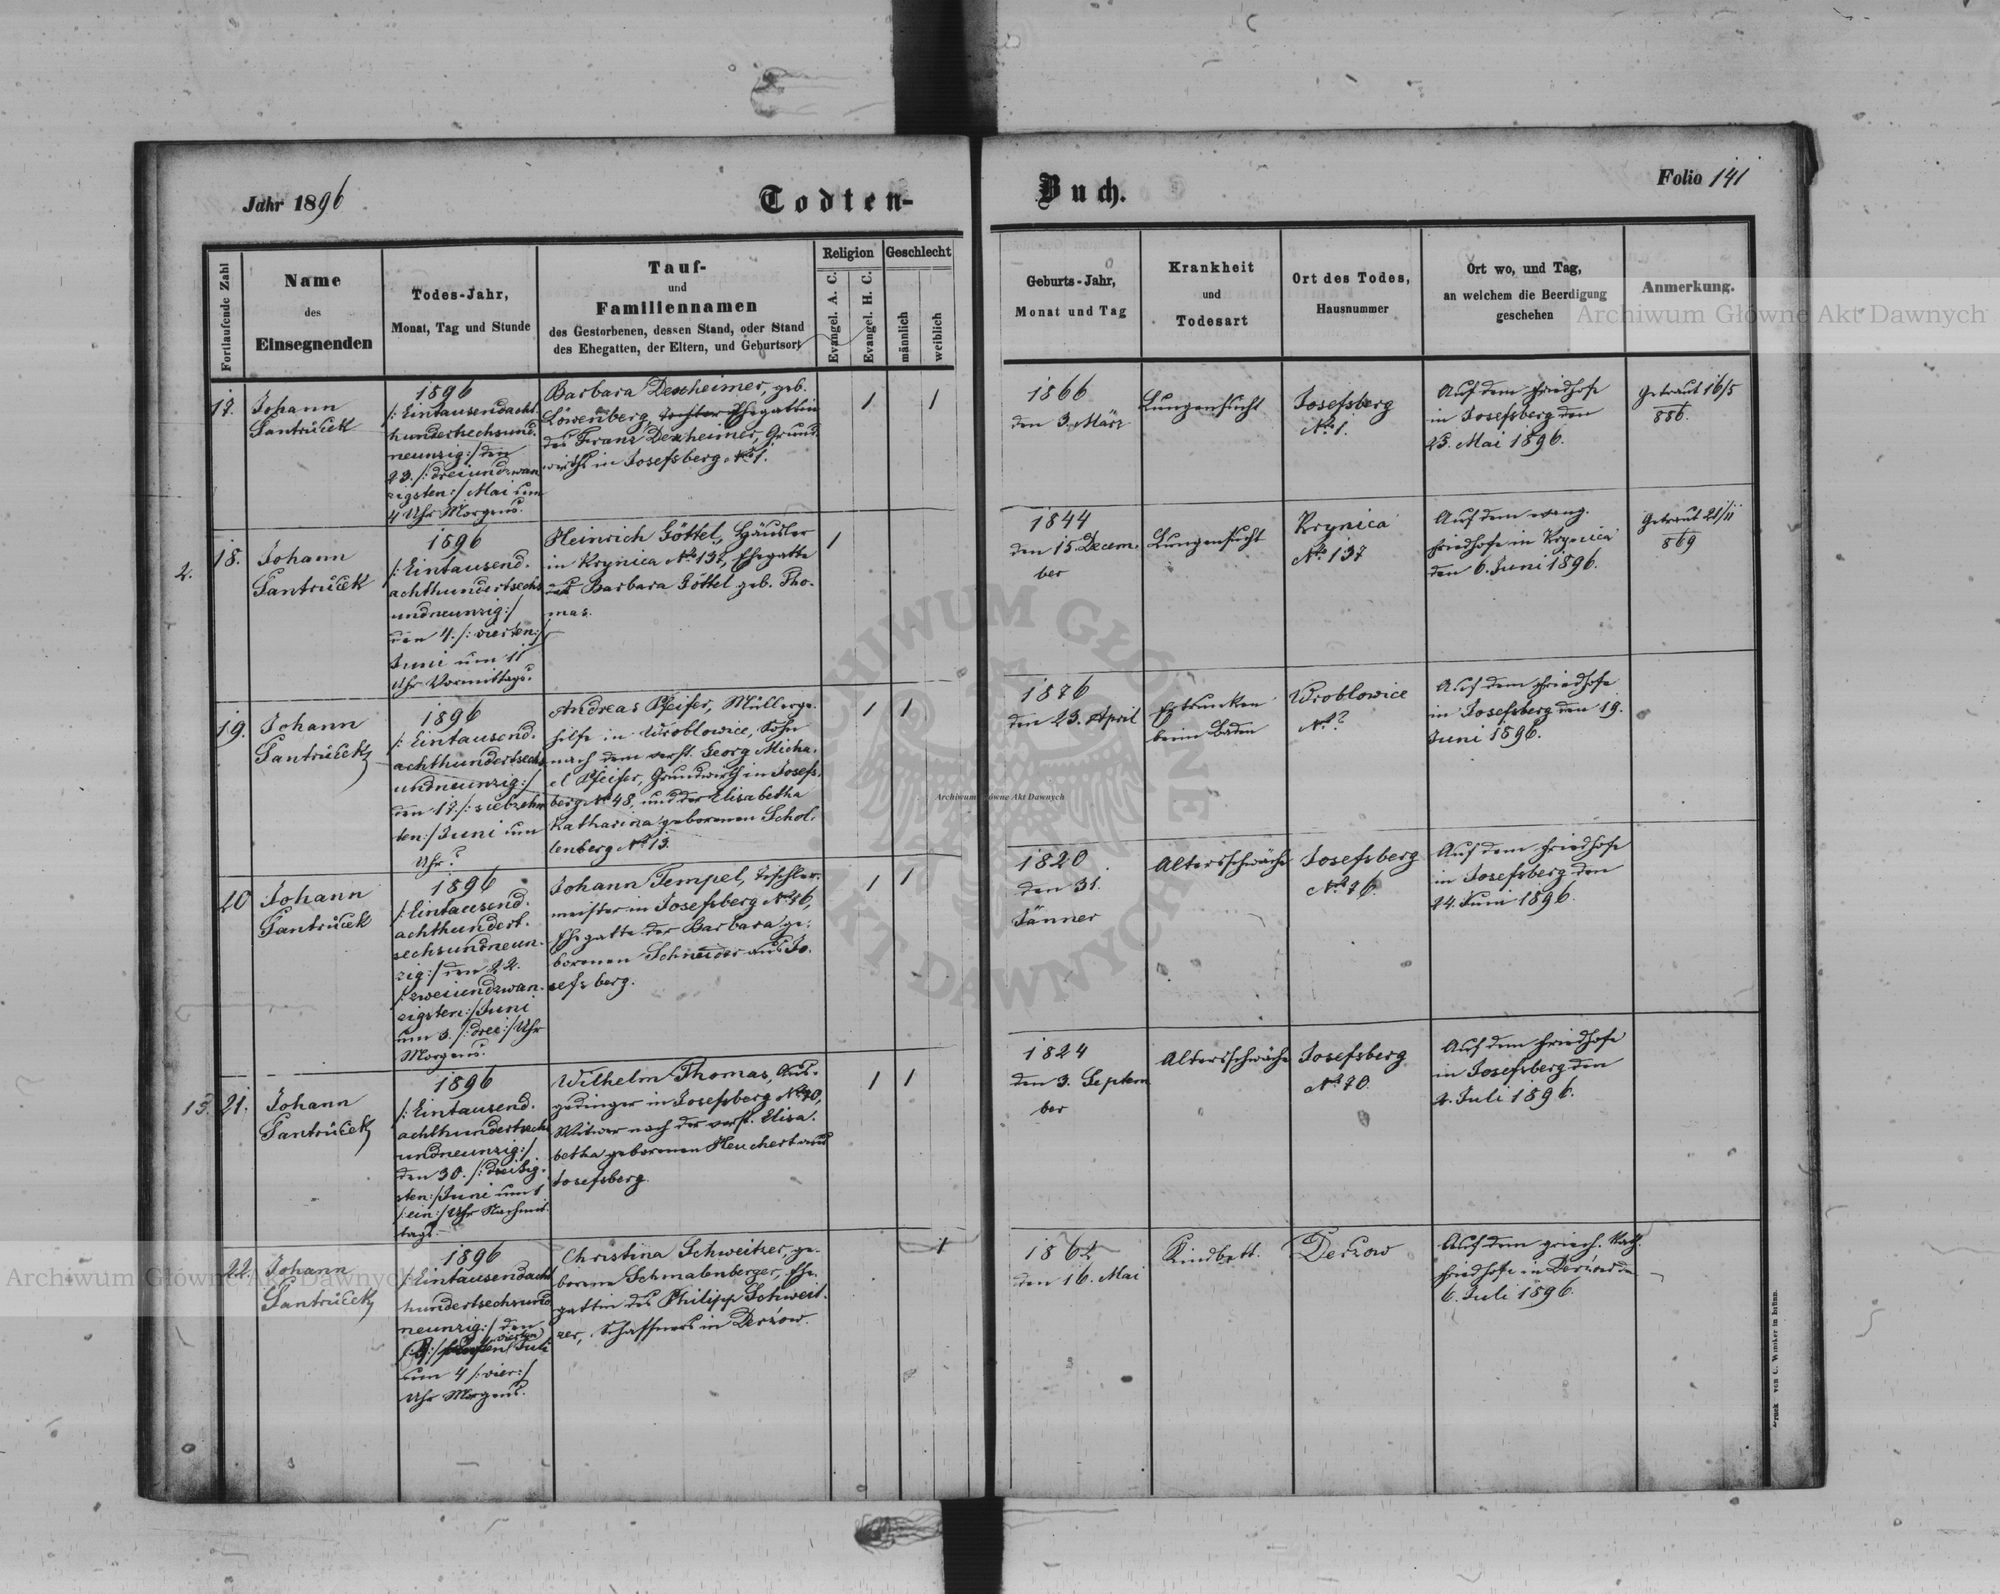 Jahr 1896
Todten-
Buch.
Folio 141
Fortlaufende Zahl
Name
des
Einsegnenden
Todes-Jahr,
Monat, Tag und Stunde
Tauf-
und
Familiennamen
des Gestorbenen, dessen Stand, oder Stand
des Ehegatten, der Eltern, und Geburtsort
Religion
Evangel. A. C.
Evangel. H. C.
Geschlecht
männlich
weiblich
Geburts-Jahr,
Monat und Tag
Krankheit
und
Todesart
Ort des Todes,
Hausnummer
Ort wo, und Tag,
an welchem die Beerdigung
geschehen
Anmerkung.
17.
Johann
Santrůček
1896
/:Eintausendacht
hundertsechsund.
neunzig:/ den
23. /:dreiundzwan
zigsten:/ Mai um
4 Uhr Morgens.
Barbara Dexheimer, geb.
Löwenberg, Ehegattin
des Franz Dexheimer, Grund.
wirths in Josefsberg No 1.
1
1
1866
den 3. März
Lungensucht
Josefsberg
No. 1.
Auf dem Friedhofe
in Josefsberg den
25. Mai 1896.
Getraut 16/5
886.
2.
18.
Johann
Santrůček
1896
/:Eintausend.
achthundertsechs
undneunzig:/
den 4. /:vierten:/
Juni um 11
Uhr Vormittags.
Heinrich Göttel, Häusler
in Krynica No 137, Ehegatte
Barbara Göttel geb. Tho.
mas.
1
1844
den 15. Decem.
ber
Lungensucht
Krynica
No 137
Auf dem evang.
Friedhofe in Krynica
den 6. Juni 1896.
Getraut 21/11
869
19.
Johann
Santrůček
1896
/:Eintausend.
achthundertsechs
undneunzig:/
den 17. /:siebzehn
ten:/ Juni um
Uhr?
Andreas Pfeifer, Müllerge.
hilfe in Wroblowice, Sohn
nach dem verst. Georg Micha.
el Pfeifer, Grundwirth in Josefs.
berg No 48, und der Elisabetha
Katharina geborenen Schol.
lenberg No 13.
1
1
1876
den 23. April
Ertrunken
beim Baden
Wroblowice
No ?
Auf dem Friedhofe
in Josefsberg den 19.
Juni 1896.
20
Johann
Santrůček
1896
/:Eintausend.
achthundert.
sechsundneun.
zig:/ den 22.
/:zweiundzwan.
zigsten:/ Juni
um 3. /:drei:/ Uhr
Morgens.
Johann Tempel, Tischler.
meister in Josefsberg No 76,
Ehegatte der Barbara ge.
borenen Schneider aus Jo.
sefsberg.
1
1
1820
den 31.
Jänner
Altersschwäche
Josefsberg
No 76.
Auf dem Friedhofe
in Josefsberg den
24. Juni 1896.
13.
21.
Johann
Santrůček
1896
/:Eintausend.
achthundertsechs
undneunzig:/
den 30. /:dreißig.
sten:/ Juni um 1
/:ein:/ Uhr Nachmit.
tags.
Wilhelm Thomas, Aus.
gedinger in Josefsberg No 70,
Witwer nach der verst. Elisa.
betha geborenen Heuchert aus
Josefsberg.
1
1
1824
den 3. Septem
ber
Altersschwäche
Josefsberg
No 70.
Auf dem Friedhofe
in Josefsberg den
2. Juli 1896.
22.
Johann
Santrůček
1896
/:Eintausendacht
hundertsechsund
neunzig:/ den
vierten Juli
um 4 /:vier:/
Uhr Morgens.
Christina Schweitzer, ge.
borene Schmalenberger, Ehe.
gattin des Philipp Schweit.
zer, Schaffners in Derzow.
1
1862
den 16. Mai
Kindbett.
Derzow
Auf dem griech. kath.
Friedhofe in Derzow den
6. Juli 1896.
Druck von C. Winiker in Brünn.
Archiwum Główne Akt Dawnych
Archiwum Główne Akt Dawnych
Archiwum Główne Akt Dawnych
ARCHIWUM GŁÓWNE AKT DAWNYCH